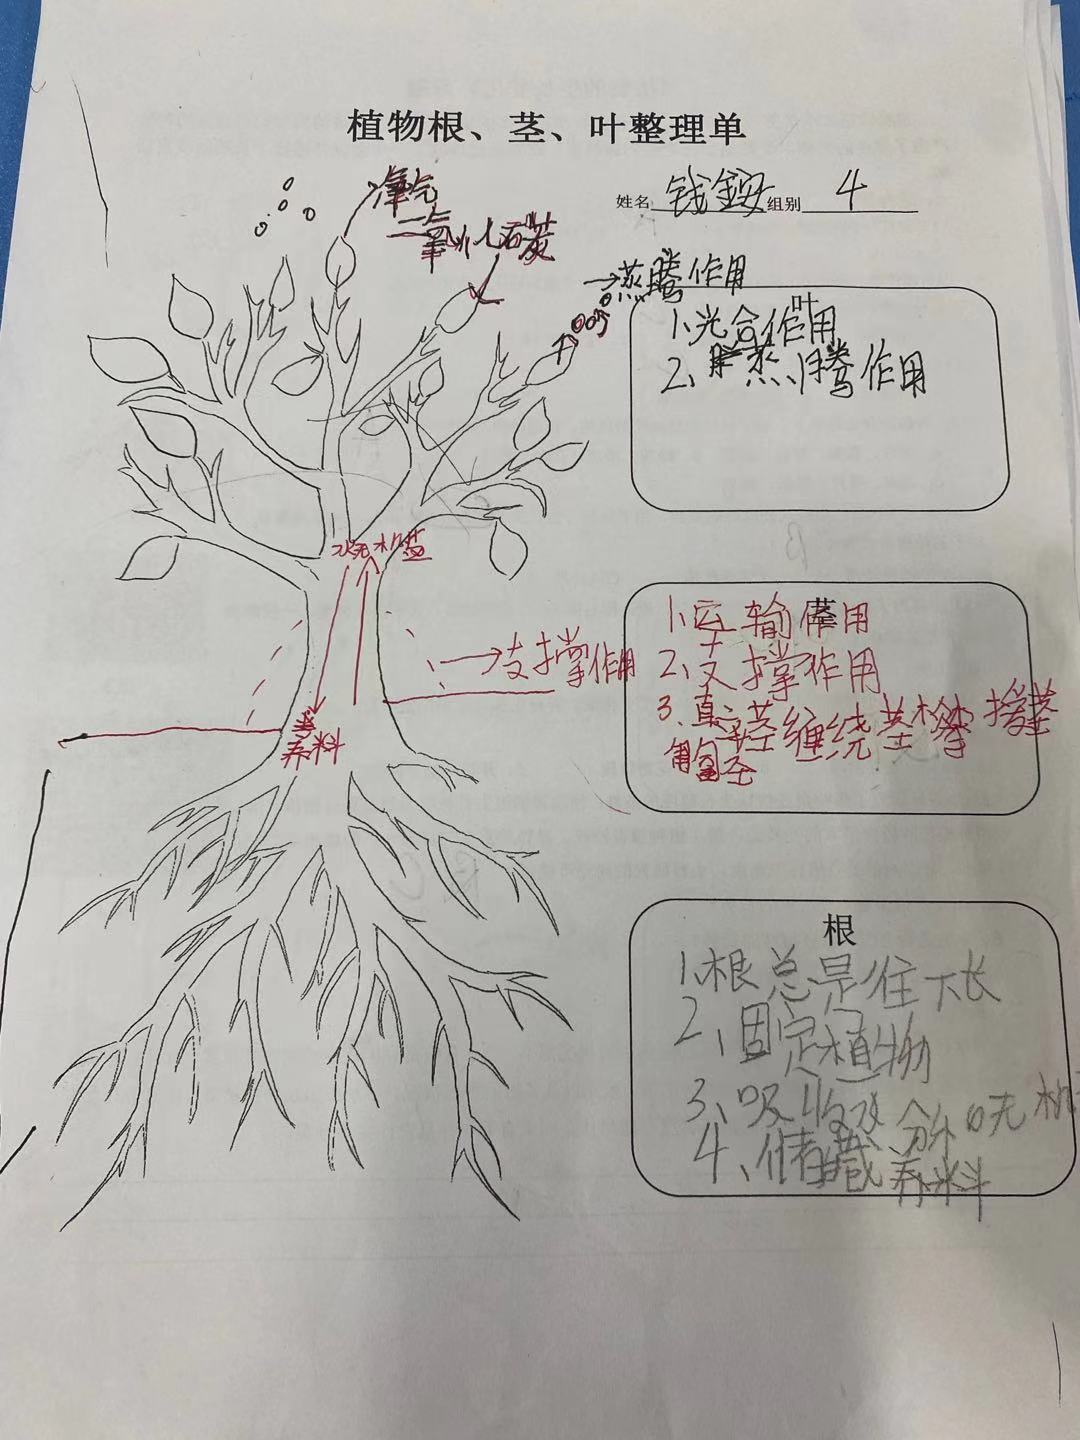 植物根、茎、叶整理单
姓名 钱鋆 组别 4
氧气
二氧化碳
→蒸腾作用
叶
1、光合作用
2、蒸腾作用
水无机盐
养料
→支撑作用
茎
1、运输作用
2、支撑作用
3、直立茎缠绕茎攀援茎
匍匐茎
根
1、根总是往下长
2、固定植物
3、吸收水分和无机
4、储藏养料